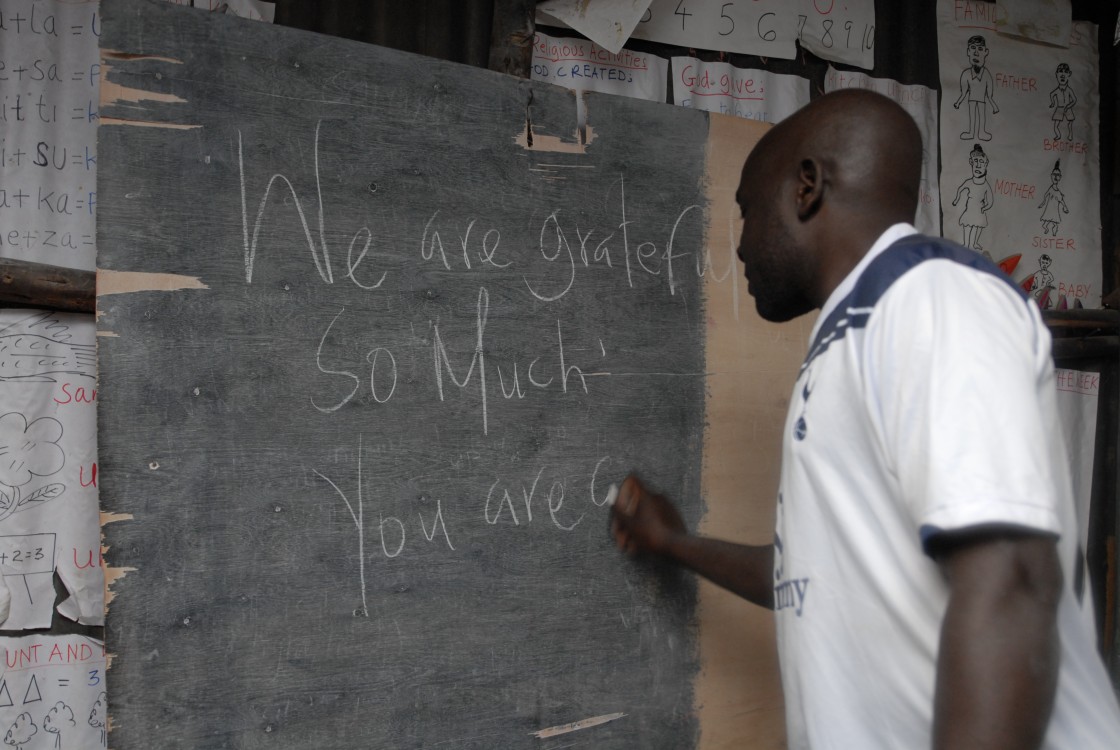 We are grateful
So Much
You are
a+la =
e+sa =
+ su =
a+ ka =
e+za =
sar
+2=3
UNT AND
= 3
4 5 6 7 8 9 10
Religious Activities
GOD CREATED,
God give,
FATHER
BROTHER
MOTHER
SISTER
BABY